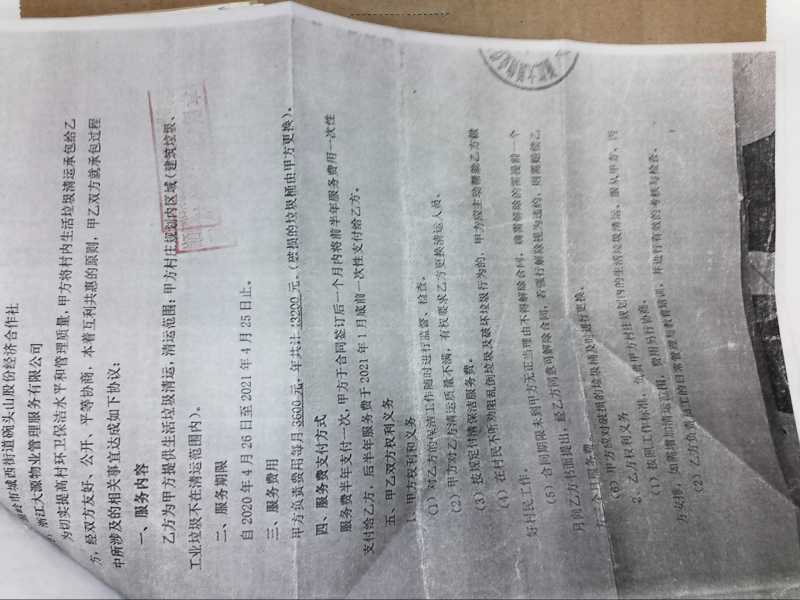 市城西街道碗头山股份经济合作社
浙江大源物业管理服务有限公司
为切实提高村环卫保洁水平和管理质量,甲方将村内生活垃圾清运承包给乙
方,经双方友好、公开、平等协商,本着互利共惠的原则,甲乙双方就承包过程
中所涉及的相关事宜达成如下协议:
一、服务内容
乙方为甲方提供生活垃圾清运,清运范围:甲方村庄规划内区域(建筑垃圾、
工业垃圾不在清运范围内)。
二、服务期限
自2020年4月26日至2021年4月25日止。
三、服务费用
甲方负责费用每月3600元,年共计43200元,(破损的垃圾桶由甲方更换)。
四、服务费支付方式
服务费半年支付一次,甲方于合同签订后一个月内将前半年服务费用一次性
支付给乙方,后半年服务费于2021年1月底前一次性支付给乙方。
五、甲乙双方权利义务
1、甲方权利和义务
(1)对乙方的保洁工作随时进行监督、检查。
(2)甲方对乙方清运质量不满,有权要求乙方更换清运人员。
(3)按规定付清保洁服务费。
(4)在村民不听劝阻乱倒垃圾及破坏垃圾行为的,甲方应主动帮助乙方做
好村民工作。
(5)合同期限未到甲方无正当理由不得解除合同,确需解除的需提前一个
月向乙方书面提出,经乙方同意可解除合同,若强行解除视为违约,则需赔偿乙
方三个月服务费。
(6)甲方应对破损的垃圾桶及时进行更换。
2、乙方权利义务
(1)按照工作标准,负责甲方村庄规划内的生活垃圾清运,服从甲方
方安排,如需增加清运范围,费用另行协商。
(2)乙方负责员工的日常管理和教育培训,并进行有效的考核与检查。